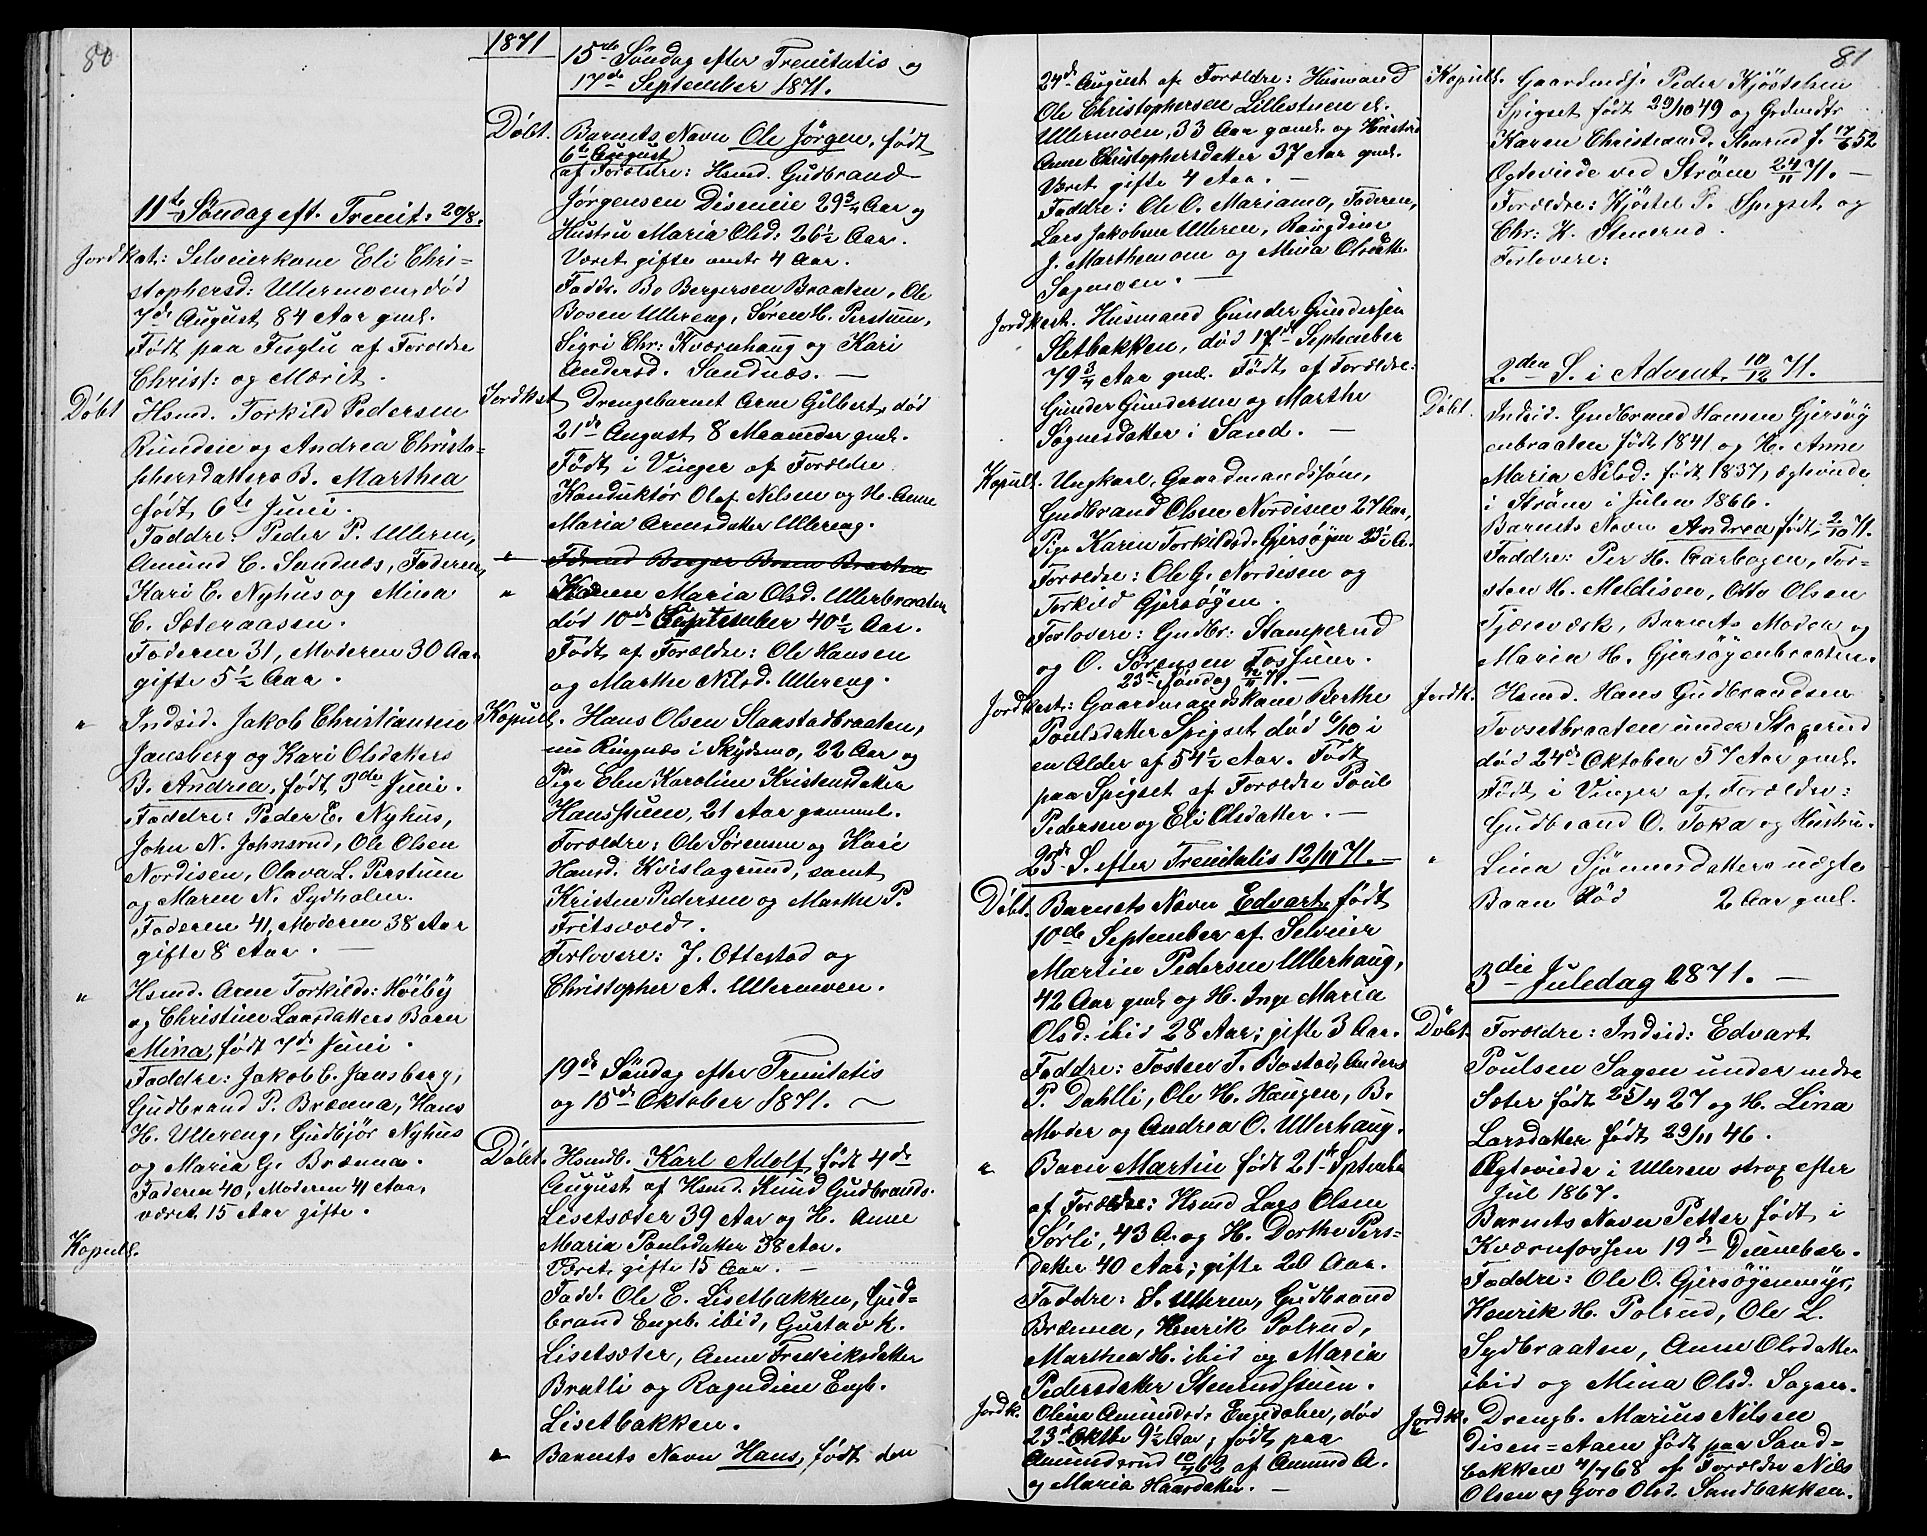 80
1871
11te Søndag eft. Trenit: 20/8.
Jordkat: Selveierkone Eli Chri-
stophersd: Ullermoen, død
7de August 84 Aar gml.
Født paa Fuglu af Forældre
Christ: og Mærit.
Døbt Hsmd. Torkild Pedersen
Rundeie og Andrea Christo-
phersdatters B. Marthea
født 6te Juni.
Faddre: Peder P. Ulleren,
Amund C. Sandnes, Faderen,
Kari E. Nyhus og Mina
C. Sæteraasen.
Faderen 31, Moderen 30 Aar
gifte 5½ Aar.
" Indsid. Jakob Christiansen
Jansberg og Kari Olsdatters
B. Andrea, født 3de Juni.
Faddre: Peder E. Nyhus,
John N. Johnsrud, Ole Olsen
Nordisen, Olava L. Perstuen
og Maren N. Sydholen.
Faderen 41, Moderen 38 Aar
gifte 8 Aar.
" Hsmd. Arne Torkilds: Høiby
og Christine Larsdatters Barn
Mina, født 7de Juni.
Faddre: Jakob C. Jansberg,
Gudbrand P. Brænna, Hans
H. Ullereng, Gudbjør Nyhus
og Maria G. Brænna.
Faderen 40, Moderen 41 Aar,
været 15 Aar gifte.
Kopull.
15de Søndag efter Trenitatis og
17de September 1871.
Døbt. Barnets Navn Ole Jørgen, født
6te August
af Forældre: Hsmd. Gudbrand
Jørgensen Diseneie 29¾ Aar og
Hustru Maria Olsd: 26½ Aar.
Været gifte omtr 4 Aar.
Faddr. Bo Bergersen Braaten, Ole
Bosen Ullereng, Søren H. Perstuen,
Sigri Chr: Kværnhaug og Kari
Andersd. Sandnæs.
Jordkast Drengebarnet Arne Gilbert, død
21de August 8 Maaneder gml.
Født i Vinger af Forældre
Konduktør Olaf Nilsen og H. Anne
Maria Arnesdatter Ullereng.
"
" Karen Maria Olsd. Ullerbraaten
død 10de September 40½ Aar.
Født af Forældre: Ole Hansen
og Marthe Nilsd. Ullereng.
Kopull. Hans Olsen Slaastadbraaten,
nu Ringnæs i Skydsmo, 22 Aar og
Pige Elen Karoline Kristensdatter
Hansstuen, 21 Aar gammel.
Forældre: Ole Sørensen og Kari
Hansd. Kvislagrund, samt
Kristen Pedersen og Marthe P.
Fritsæved.
Forlovere: J. Ottestad og
Christopher A. Ullermoen.
19de Søndag efter Trenitatis
og 15de Oktober 1871.
Døbt. Hsmdb. Karl Adolf, født 4de
August af Hsmd. Knud Gudbrands.
Lisetsæter 39 Aar og H. Anne
Maria Poulsdatter 38 Aar.
Været gifte 15 Aar.
Fadd. Ole E. Lisetbakken, Gud-
brand Engb. ibid, Gustav K.
Lisetsæter, Anne Fredriksdatter
Bratli og Ragndine Engb.
Lisetbakken.
" Barnets Navn Hans, født den
81
24de August af Forældre: Husmand
Ole Christophersen Lillestuen u.
Ullermoen, 33 Aar gaml. og Hustru
Anne Christophersdatter 37 Aar gml.
Været gifte 4 Aar.
Faddre: Ole O. Mariamo, Faderen,
Lars Jakobsen Ulleren, Rangdine
J. Marthemoen og Mina Olsdatter
Sagmoen.
Jordkast. Husmand Gunder Gundersen
Sletbakken, død 17de September
79¾ Aar gml. Født af Forældre:
Gunder Gundersen og Marthe
Sognesdatter i Sand.
Kopull. Ungkarl, Gaardmandssøn,
Gudbrand Olsen Nordisen 27 Aar,
Pige Karen Torkildsd. Gjersøgen 23½ A.
Forældre: Ole G. Nordisen og
Torkild Gjersøgen.
Forlovere: Gudbr: Stamperud
og O. Sørensen Fossum.
23de Søndag 12/11 71.
Jordkast: Gaardmandskone Berthe
Poulsdatter Spigset død 6/10 i
en Alder af 54½ Aar. Født
paa Spigset af Forældre Poul
Pedersen og Eli Olsdatter.
23de S. efter Trenitatis 12/11 71.
Døbt. Barnets Navn Edvart, født
10de September af Selveier
Martin Pedersen Ullerhaug,
42 Aar gml. og H. Inge Maria
Olsd: ibid 28 Aar; gifte 3 Aar.
Faddre: Tosten T. Bostad, Anders
P. Dahlli, Ole H. Haugen, B.
Moder og Andrea O. Ullerhaug.
" Barn Martin født 21de Septembr
af Forældre: Hsmd Lars Olsen
Sørli, 43 A. og H. Dorthe Pers-
datter 40 Aar; gifte 20 Aar.
Faddre: S. Ulleren, Gudbrand
Brænna, Henrik Polrud,
Marthea H. ibid og Maria
Pedersdatter Stenerudstuen.
Jordk. Oline Amundsd: Engedalen, død
23de Oktbr 9½ Aar; født paa
Amunderud 10/4 62 af Amund A.
og Maria Haarsdatter.
Kopull. Gaardmdsf. Peder Kjøstelsen
Spigset født 29/10 49 og Grdmdtr
Karen Christiansd. Stenrud f. 17/6 52
Ægteviede ved Strøm 24/11 71.
Forældre: Kjøstel P. Spigset og
Chr: H. Stenerud.
Forlovere:
2den S. i Advent. 10/12 71.
Døbt. Indsid. Gudbrand Hansen Gjersøg
enbraaten født 1841 og H. Anne
Maria Nilsd: født 1837, ægteviede
i Strøm i Julen 1866.
Barnets Navn Andrea født 2/10 71.
Faddre: Per H. Aarbogen, Tor-
sten H. Meldisen, Otto Olsen
Tjæreværk, Barnets Moder og
Maria H. Gjersøgenbraaten.
Jordk. Hsmd. Hans Gudbrandsen
Torsetbraaten under Stagerud
død 24de Oktober 57 Aar gml.
Født i Vinger af Forældre:
Gudbrand O. Toka og Hustru.
" Lina Sjønnesdatters uægte
Barn død 2 Aar gml.
3die Juledag 1871.
Døbt. Forældre: Indsid: Edvart
Poulsen Sagen under nedre
Sæter født 25/4 27 og H. Lina
Larsdatter født 29/11 46.
Ægteviede i Ulleren strax efter
Jul 1867.
Barnets Navn Petter født i
Kværnfossen 19de Desember.
Faddre: Ole O. Gjersøgenmyr,
Henrik H. Polrud, Ole L.
Sydbraaten, Anne Olsdatter
ibid og Mina Olsd. Sagen.
Jordk. Drengb. Marius Nilsen
Disen-Aaen født paa Sand-
bakken 4/7 68 af Forældre Nils
Olsen og Goro Olsd. Sandbakken.